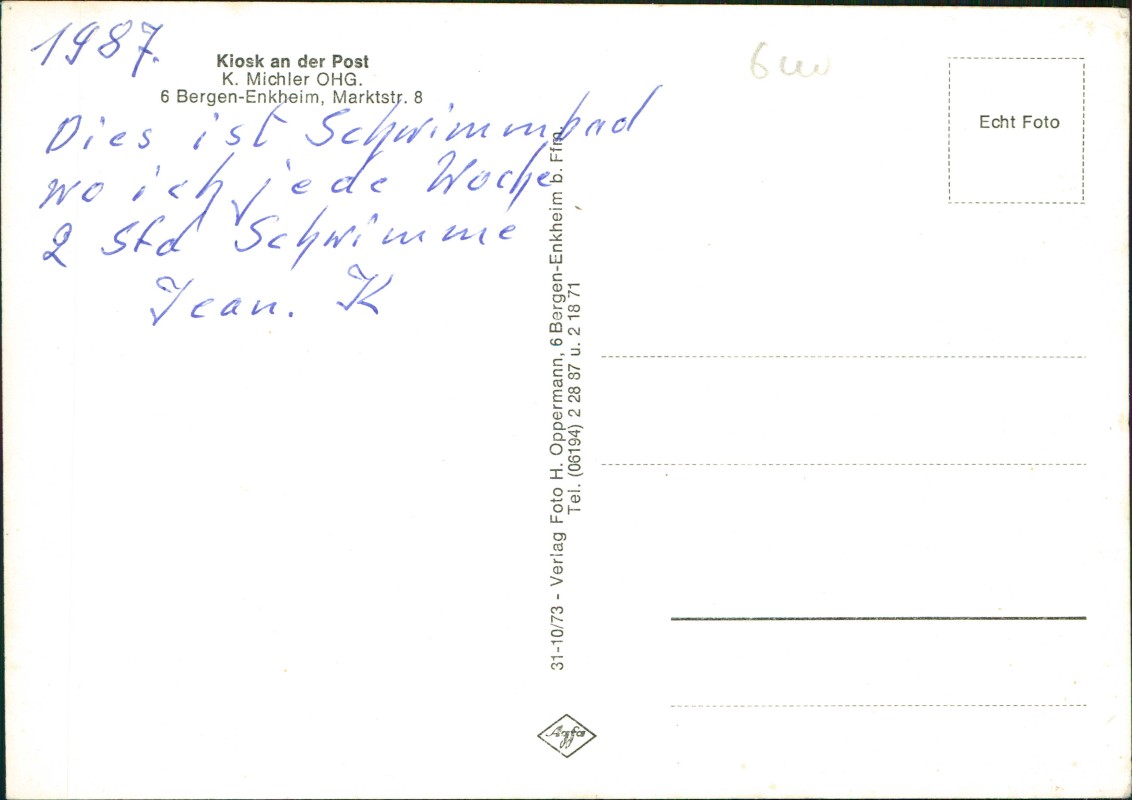 1987.
Kiosk an der Post
K. Michler OHG.
6 Bergen-Enkheim, Marktstr. 8
Dies ist Schwimmbad
wo ich jede Woche
2 Std Schwimme
Jean. K
31-10/73 - Verlag Foto H. Oppermann, 6 Bergen-Enkheim b. Ffm.
Tel. (06194) 2 28 87 u. 2 18 71
Echt Foto
Agfa